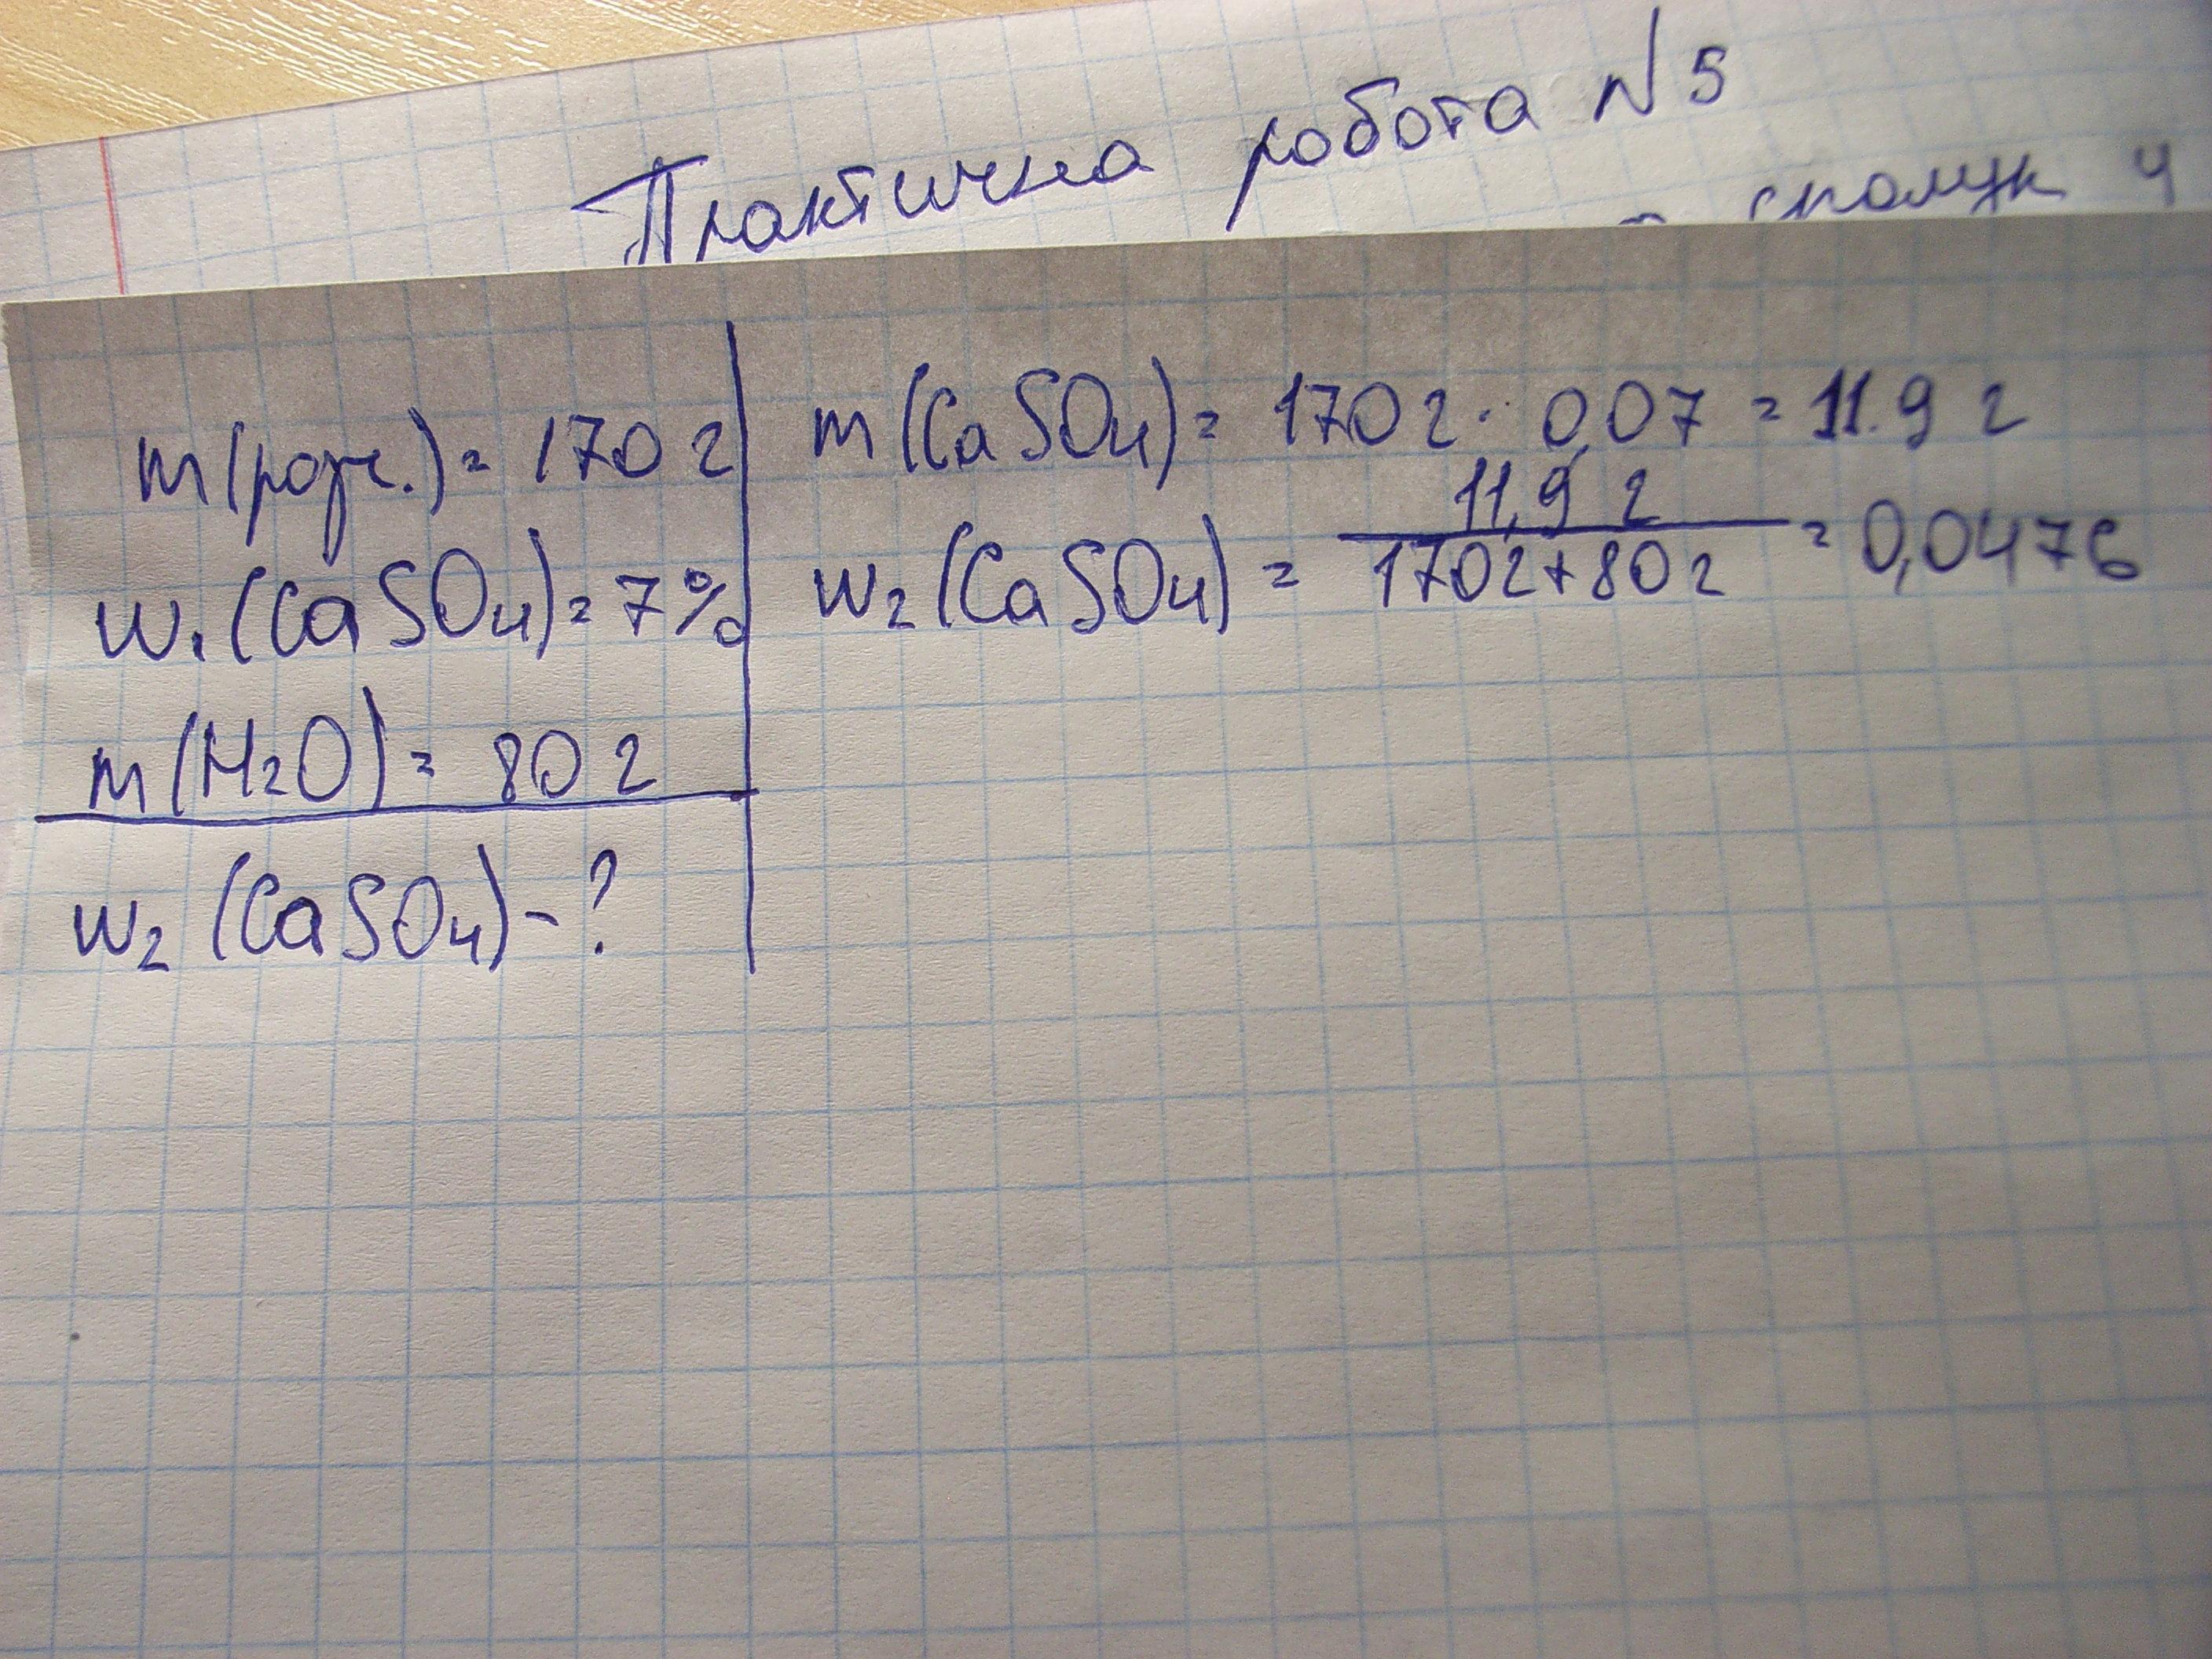 Практична робота N 5
сполук ч
m(розч.) = 170 г
w₁(CaSO₄) = 7%
m(H₂O) = 80 г
w₂(CaSO₄) - ?
m(CaSO₄) = 170 г · 0,07 = 11.9 г
w₂(CaSO₄) = 11,9 г / 170г+80г = 0,0476